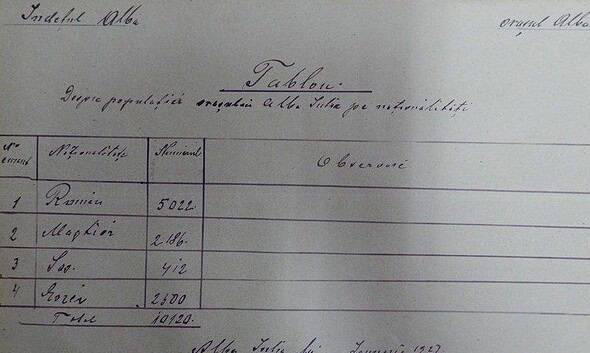 Județul Alba
orașul Alba
Tablou.
Despre populația orașului Alba Iulia pe naționalități
No curent Naționalitate Numărul Observări
1 Români 5022.
2 Maghiar 2186.
3 Sas. 412
4 Evrei 2500
Total 10120.
Alba Iulia Ianuarie 1927